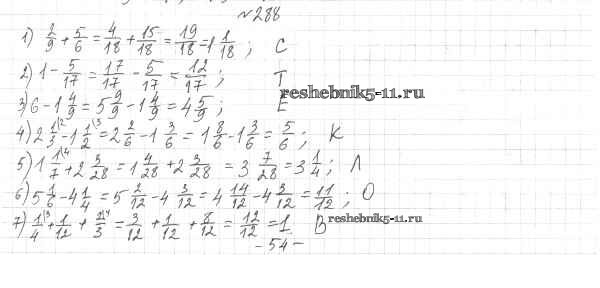 №288
1) 2/9 + 5/6 = 4/18 + 15/18 = 19/18 = 1 1/18 ; С
2) 1 - 5/17 = 17/17 - 5/17 = 12/17 ; Т
reshebnik5-11.ru
3) 6 - 1 4/9 = 5 9/9 - 1 4/9 = 4 5/9 ; Е
4) 2 1/3 |2 - 1 1/2 |3 = 2 2/6 - 1 3/6 = 1 8/6 - 1 3/6 = 5/6 ; К
5) 1 1/7 |4 + 2 3/28 = 1 4/28 + 2 3/28 = 3 7/28 = 3 1/4 ; Л
6) 5 1/6 - 4 1/4 = 5 2/12 - 4 3/12 = 4 14/12 - 4 3/12 = 11/12 ; О
7) 1/4 |3 + 1/12 + 2/3 |4 = 3/12 + 1/12 + 8/12 = 12/12 = 1. В
reshebnik5-11.ru
- 54 -